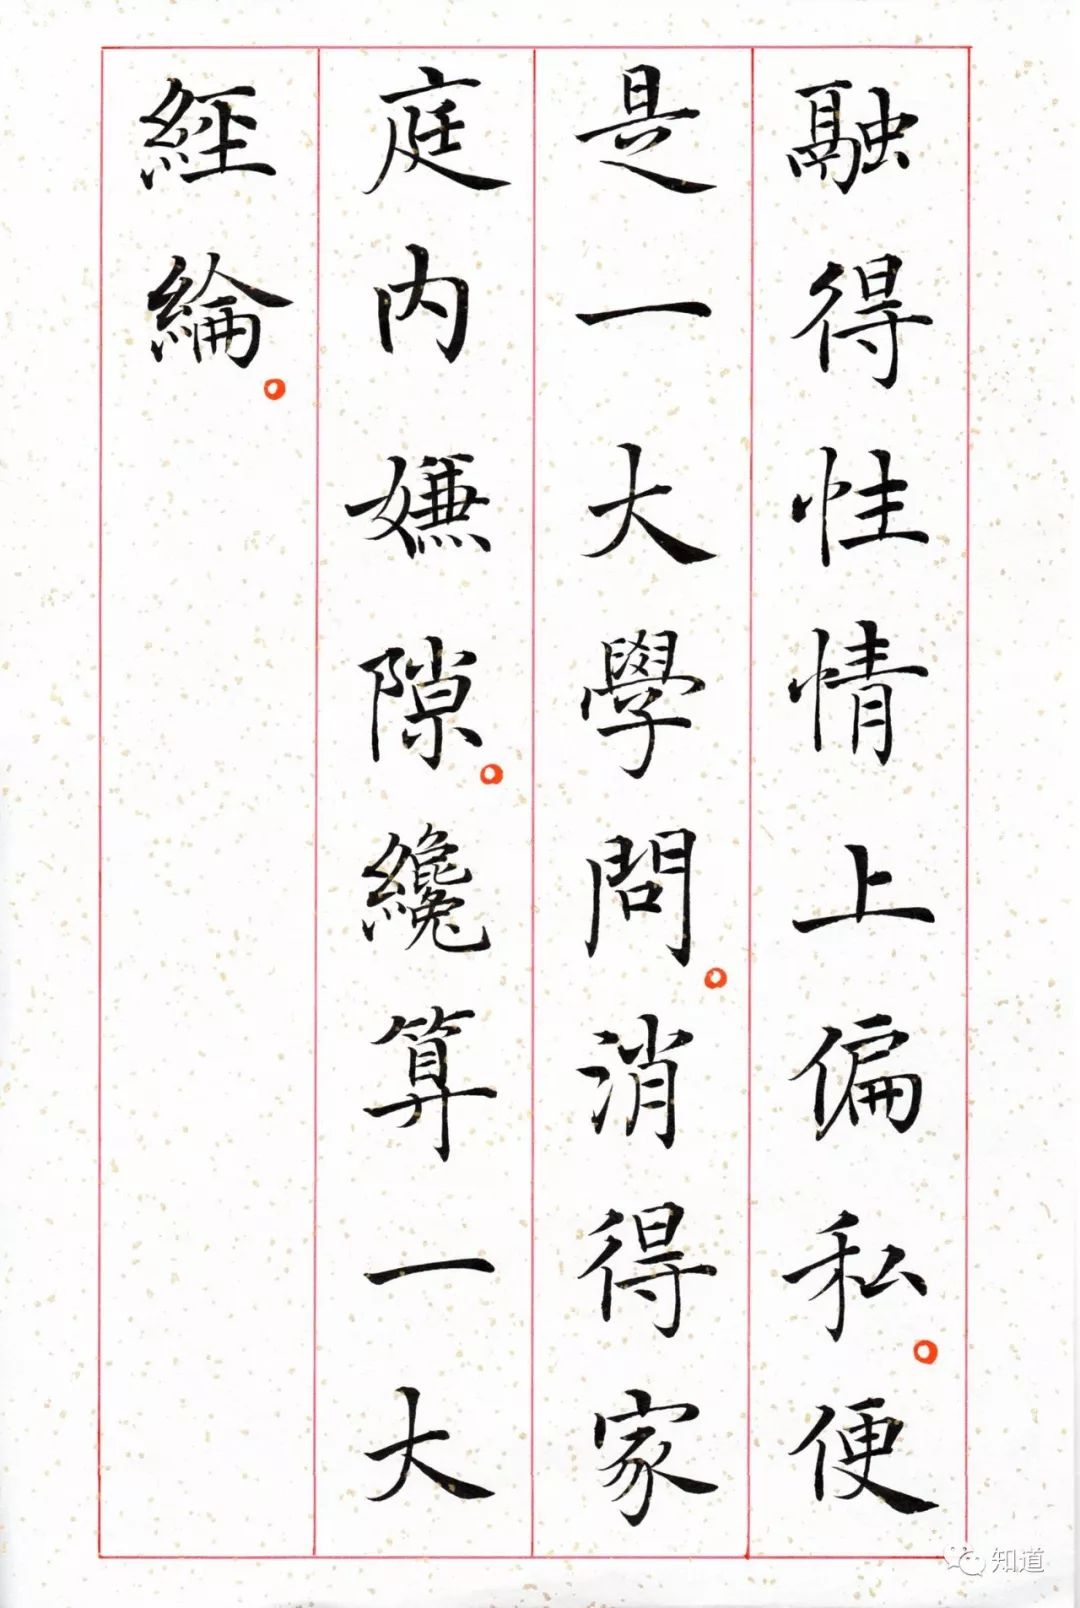 融得性情上偏私。便
是一大學問。消得家
庭内嫌隙。纔算一大
經綸。
知道